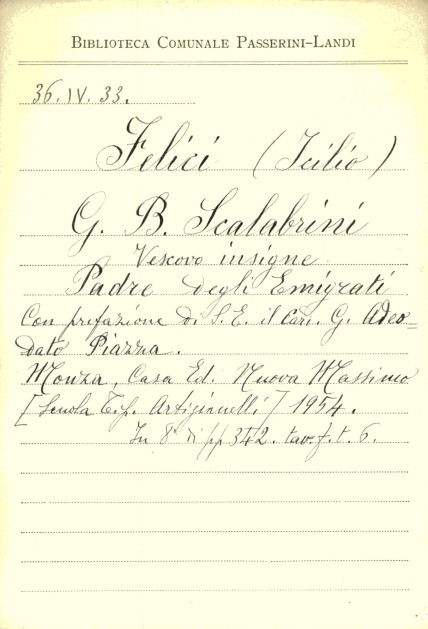 BIBLIOTECA COMUNALE PASSERINI-LANDI
36. IV. 33.
Felici (Icilio)
G. B. Scalabrini
Vescovo insigne
Padre degli Emigrati
Con prefazione di S. E. il Car. G. Adeo=
dato Piazza.
Monza, Casa Ed. Nuova Massimo
[Scuola Tip. Artigianelli] 1954.
In 8° di pp 342. tav. f. t. 6.